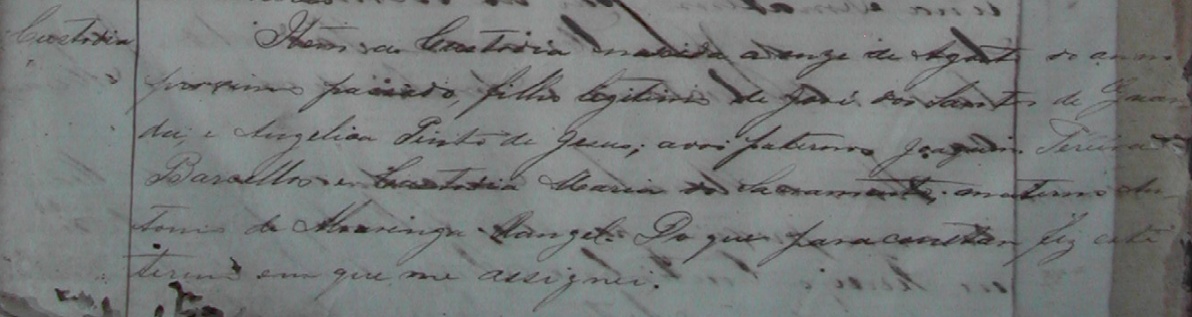 Custodia
Item de Custodia nascida a onze de Agosto do anno
proximo passado, filha legitima de José dos Santos de
e Angelica Pinto de Jesus; avos paternos Joaquim Pereira
Barcellos e Custodia Maria do Sacramento; maternos An-
tonio de Rangel. Do que para constar fiz este
termo em que me assignei.